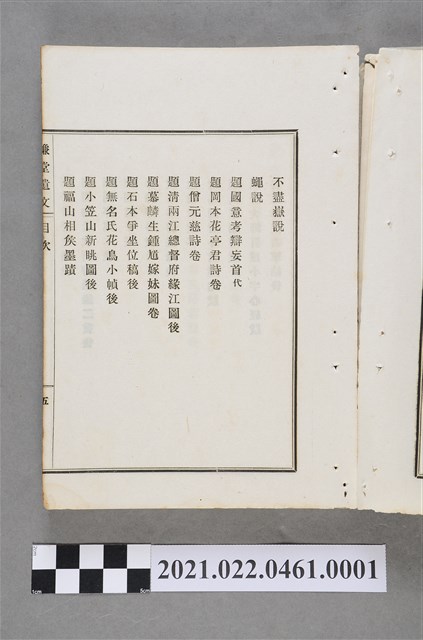 不盡嶽說
蠅說
題國意考辯妄首代
題岡本花亭君詩卷
題僧元慈詩卷
題淸兩江總督府緣江圖後
題慕麟生鍾馗嫁妹圖卷
題石本爭坐位稿後
題無名氏花鳥小幀後
題小笠山新眺圖後
題福山相矦墨蹟
謙堂遺文 目次
五
2021.022.0461.0001